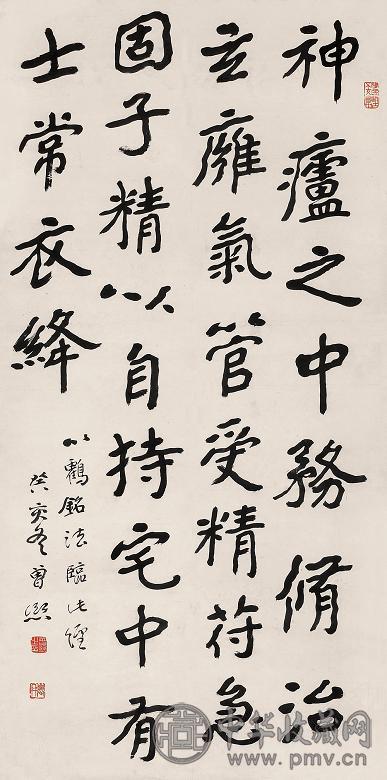 神廬之中務脩治
玄廱氣管受精苻急
固子精以自持宅中有
士常衣絳
以鶴銘法臨此經
癸亥冬曾熙
中华收藏网
www.pmv.cn